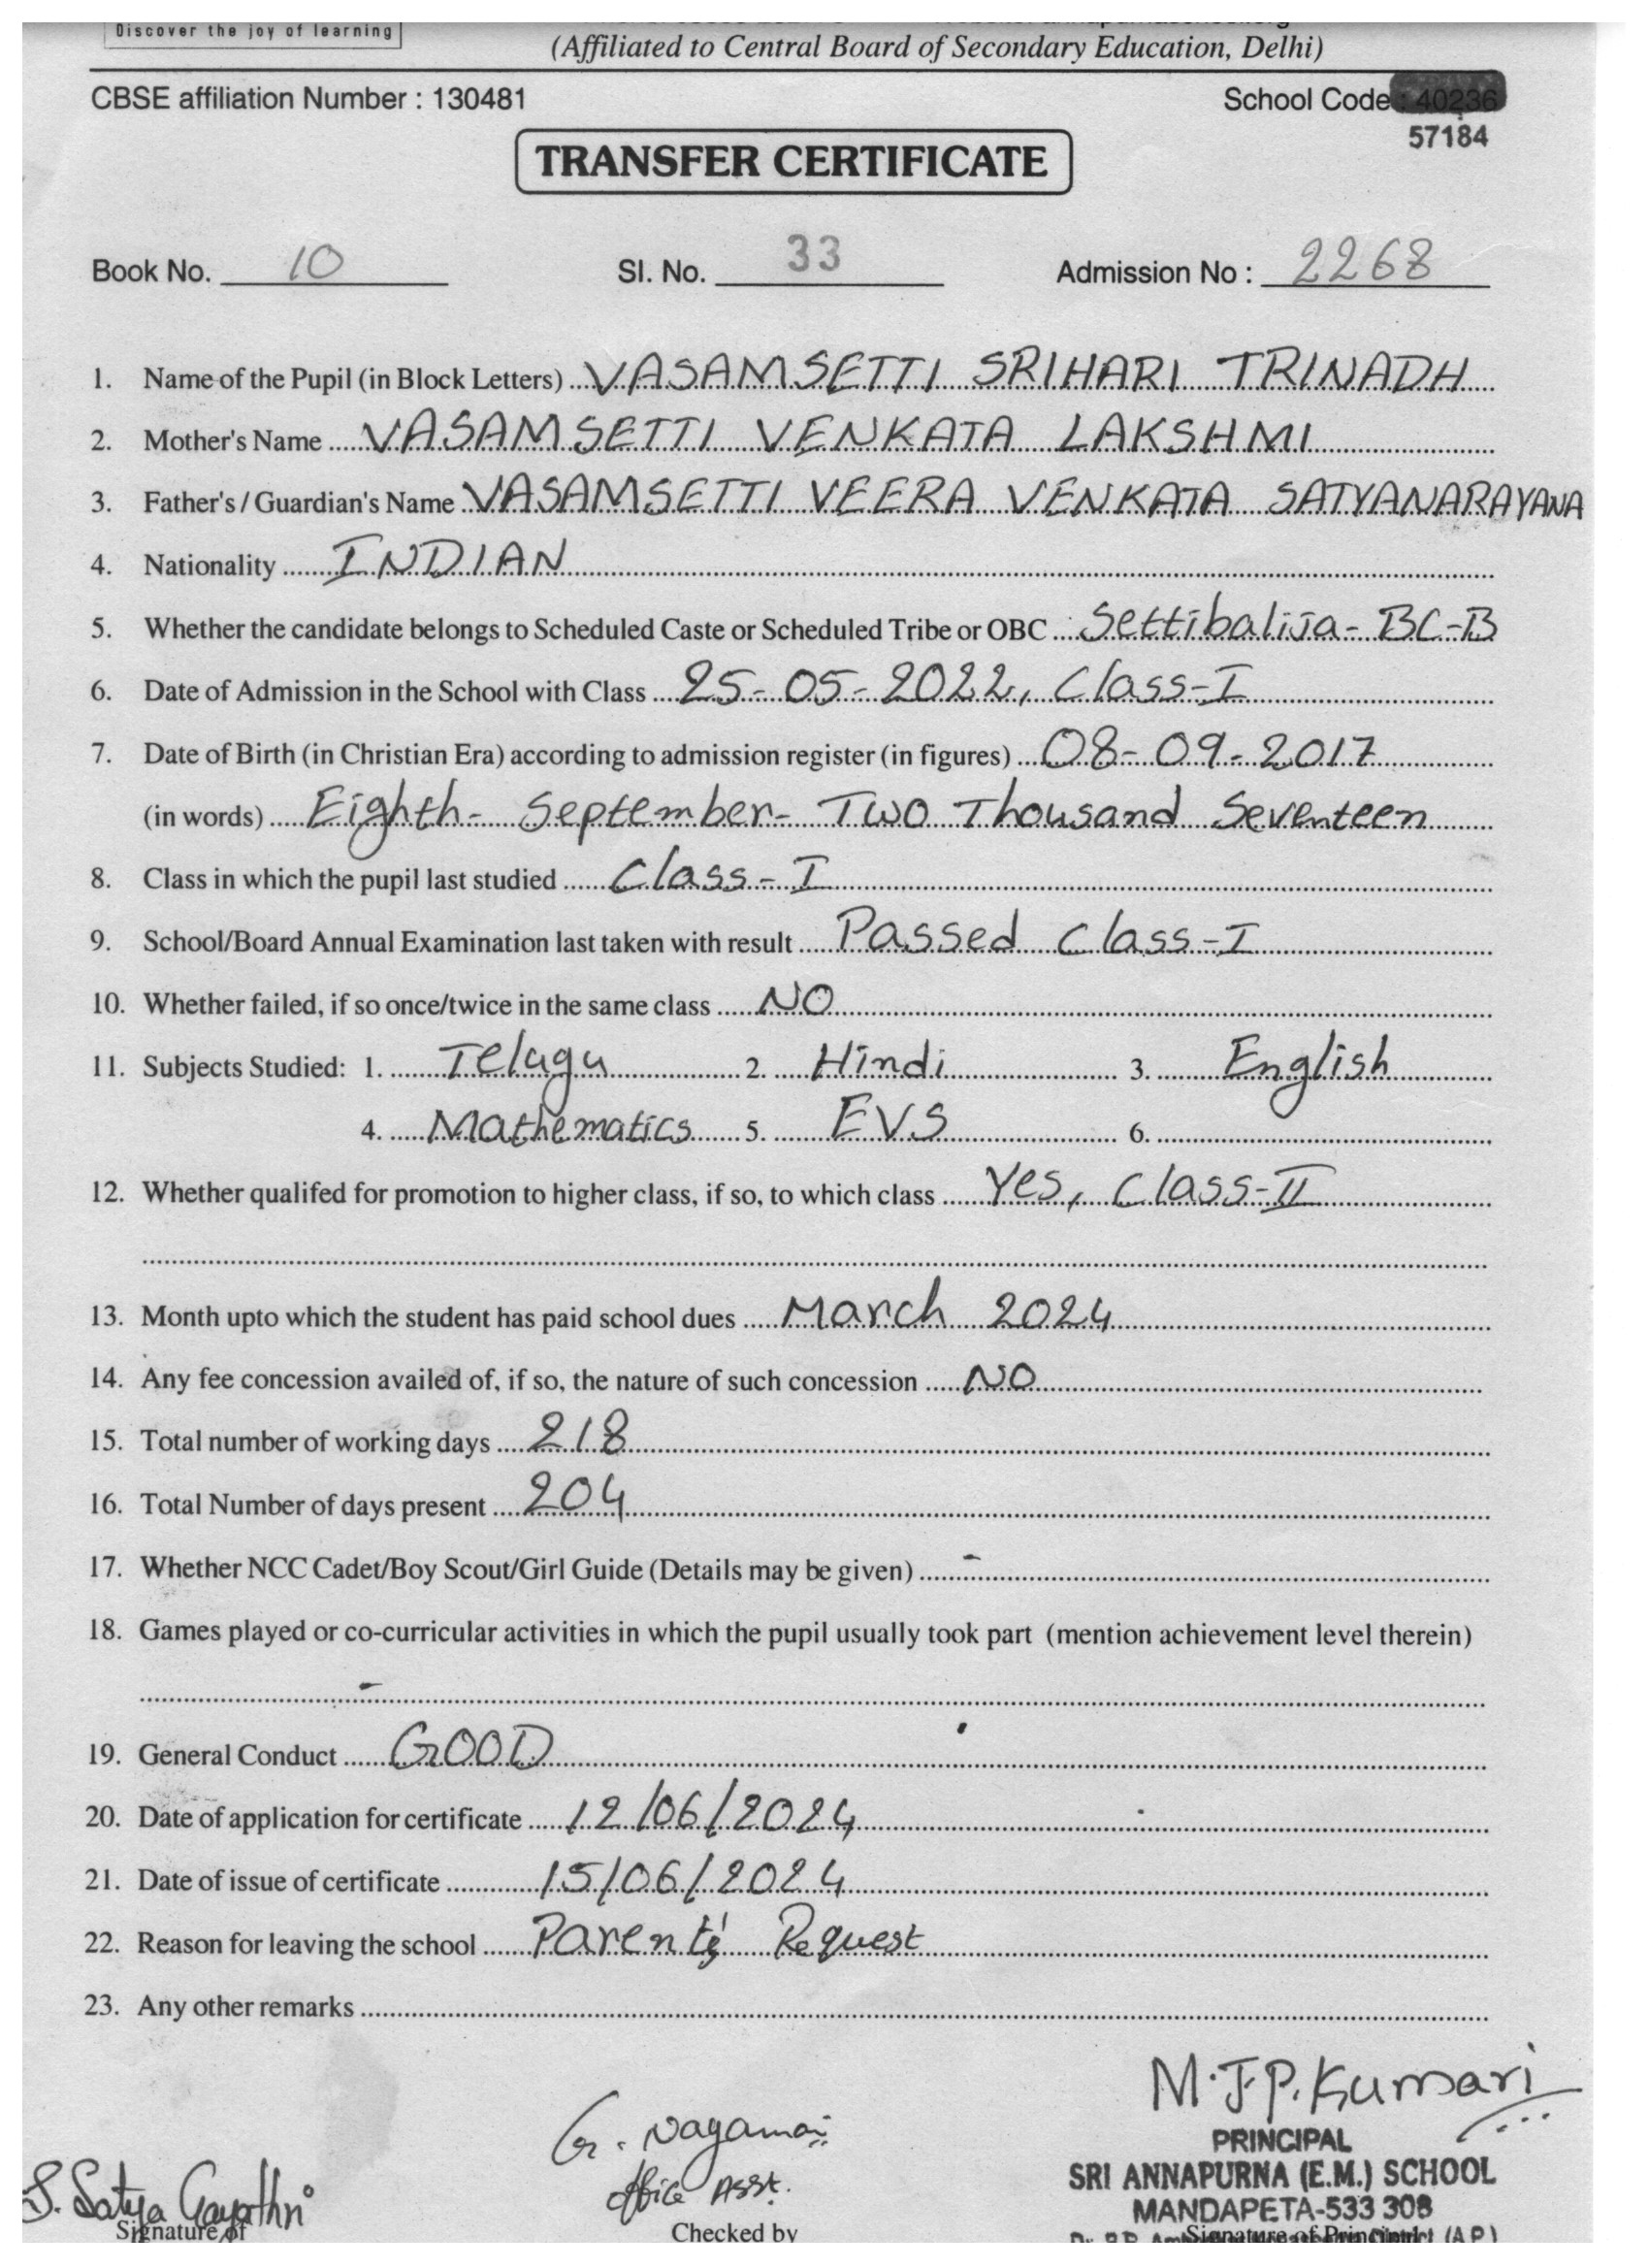 Discover the joy of learning
(Affiliated to Central Board of Secondary Education, Delhi)
CBSE affiliation Number : 130481 School Code : 40236
57184
TRANSFER CERTIFICATE
Book No. 10 Sl. No. 33 Admission No : 2268
1. Name of the Pupil (in Block Letters) VASAMSETTI SRIHARI TRINADH
2. Mother's Name VASAMSETTI VENKATA LAKSHMI
3. Father's / Guardian's Name VASAMSETTI VEERA VENKATA SATYANARAYANA
4. Nationality INDIAN
5. Whether the candidate belongs to Scheduled Caste or Scheduled Tribe or OBC Settibalija - BC-B
6. Date of Admission in the School with Class 25-05-2022, Class-I
7. Date of Birth (in Christian Era) according to admission register (in figures) 08-09-2017
(in words) Eighth- September- Two Thousand Seventeen
8. Class in which the pupil last studied Class-I
9. School/Board Annual Examination last taken with result Passed Class-I
10. Whether failed, if so once/twice in the same class NO
11. Subjects Studied: 1. Telugu 2. Hindi 3. English
4. Mathematics 5. EVS 6.
12. Whether qualifed for promotion to higher class, if so, to which class Yes, Class-II
13. Month upto which the student has paid school dues March 2024
14. Any fee concession availed of, if so, the nature of such concession NO
15. Total number of working days 218
16. Total Number of days present 204
17. Whether NCC Cadet/Boy Scout/Girl Guide (Details may be given) -
18. Games played or co-curricular activities in which the pupil usually took part (mention achievement level therein)
-
19. General Conduct GOOD
20. Date of application for certificate 12/06/2024
21. Date of issue of certificate 15/06/2024
22. Reason for leaving the school Parent's Request
23. Any other remarks
M.J.P.Kumari
PRINCIPAL
SRI ANNAPURNA (E.M.) SCHOOL
MANDAPETA-533 308
G. Nagamani
Office Asst.
S. Satya Gayathri
Signature of Checked by Signature of Principal